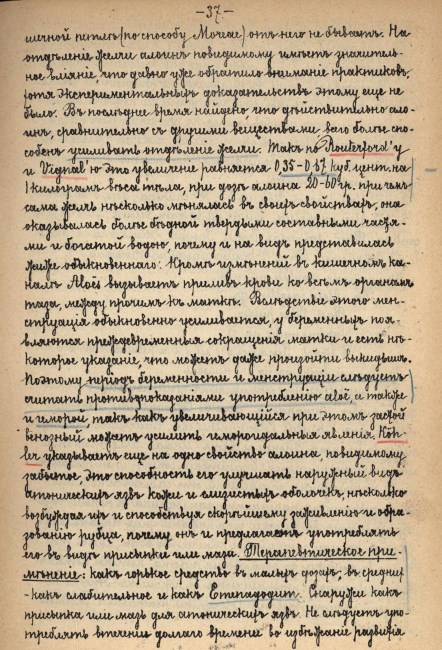 — 37 —
шечной петлѣ (по способу Мочеае) отъ него не бываетъ. На
отдѣленіе желчи алоинъ повидимому имѣетъ значитель-
ное вліяніе, что давно уже обратило вниманіе практиковъ,
хотя экспериментальныхъ доказательствъ этому еще не
было. Въ послѣднее время найдено, что дѣйствительно ало-
инъ, сравнительно съ другими веществами, всего болѣе спо-
собенъ усиливать отдѣленіе желчи. Такъ по Routerford'у
и Vignal'ю это увеличеніе равняется 0,35—0,67 куб. цент. на
1 килограмъ вѣса тѣла, при дозѣ алоина 20-60 гр. при чемъ
сама желчь нѣсколько мѣнялась въ своихъ свойствахъ, она
оказывалась болѣе бѣдной твердыми составными частя-
ми и богатой водою, почему и на видъ представлялась
жиже обыкновеннаго. Кромѣ измѣненій въ кишечномъ ка-
налѣ Aloës вызываетъ приливъ крови ко всѣмъ органамъ
таза, между прочимъ къ маткѣ. Вслѣдствіе этого мен-
струація обыкновенно усиливается, у беременныхъ поя-
вляются преждевременныя сокращенія матки и есть нѣ-
которое указаніе, что можетъ даже произойти выкидышъ.
Поэтому періодъ беременности и менструаціи слѣдуетъ
считать противупоказаніями употребленію aloë, а также
и геморой, такъ какъ увеличивающійся при этомъ застой
венозный можетъ усилить гемороидальныя явленія. Köh-
ler указываетъ еще на одно свойство алоина, повидимому
забытое, это способность его улучшать наружный видъ
атоническихъ язвъ кожи и слизистыхъ оболочекъ, нѣсколько
возбуждая ихъ и способствуя скорѣйшему заживленію и обра-
зованію рубца, почему онъ и предлагаетъ употреблять
его въ видѣ присыпки или мази. Терапевтическое при-
мѣненіе: какъ горькое средство въ малыхъ дозахъ, въ среднихъ
- какъ слабительное и какъ Em̀enagogum. Снаружи какъ
присыпка или мазь для атоническихъ язвъ. Не слѣдуетъ упо-
треблять втеченіи долгаго времени во избѣжаніе развитія